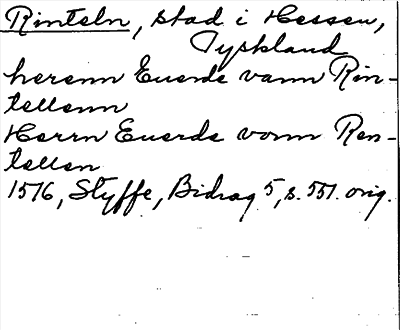 Rinteln, stad i Hessen,
Tyskland
herenn Euerde vann Rin-
tellenn
Herrn Euerde vonn Ren-
tellen
1516, Styffe, Bidrag 5, s. 551. orig.